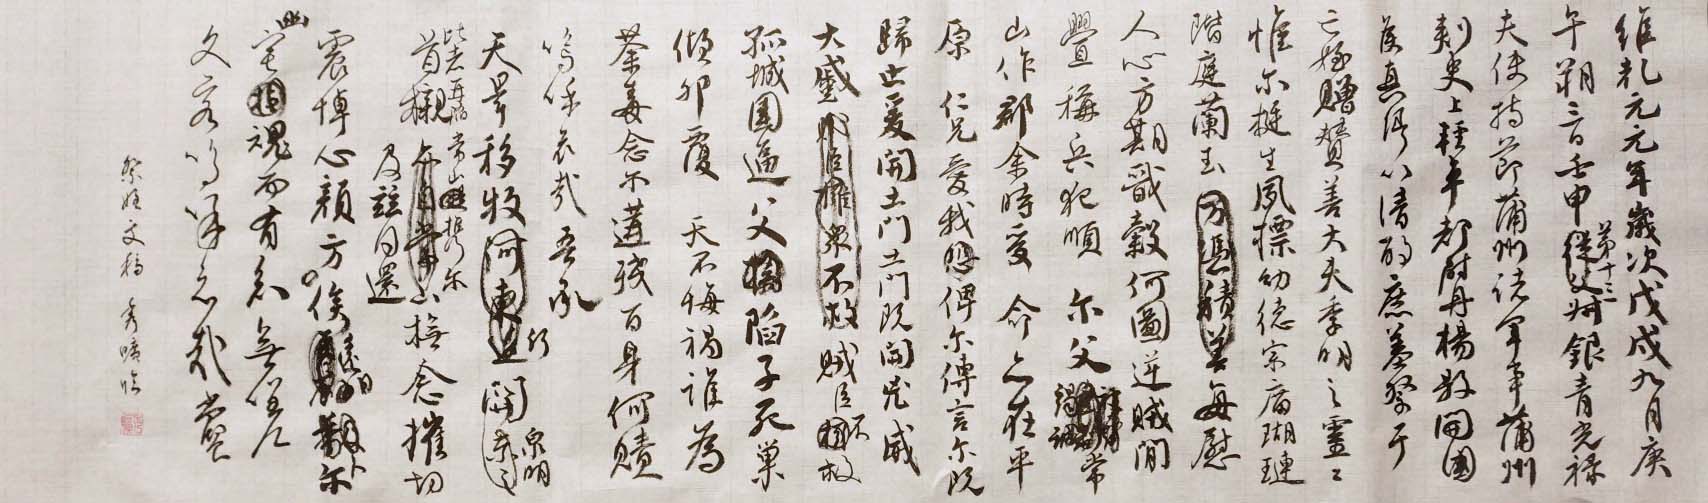 維乾元元年歲次戊戌九月庚
午朔三日壬申第十三從父叔銀青光祿
夫使持節蒲州諸軍事蒲州
刺史上輕車都尉丹楊縣開國
侯真卿以清酌庶羞祭于
亡姪贈贊善大夫季明之靈曰
惟爾挺生夙標幼德宗廟瑚璉
階庭蘭玉方憑積善每慰
人心方期戩穀何圖逆賊閒
舋稱兵犯順爾父竭誠常
山作郡余時受命亦在平
原仁兄愛我恐俾爾傳言爾既
歸止爰開土門土門既開凶威
大蹙賊臣擁眾不救賊臣不救
孤城圍逼父陷子死巢
傾卵覆天不悔禍誰為
荼毒念爾遘殘百身何贖
嗚呼哀哉吾承
天澤移牧河東近泉明
比者再陷常山攜爾
首櫬及茲同還撫念摧切
震悼心顏方俟遠日卜爾
幽宅魂而有知無嗟久
客嗚呼哀哉尚饗
祭姪文稿